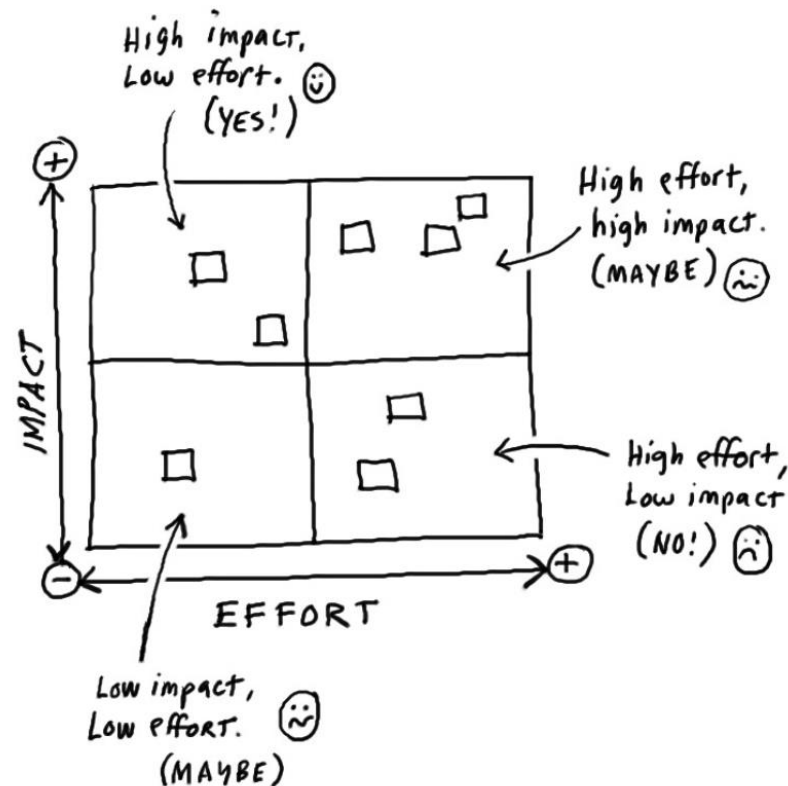 High impact,
Low effort.
(YES!)
+
High effort,
high impact.
(MAYBE)
IMPACT
High effort,
Low impact
(NO!)
−
+
EFFORT
Low impact,
Low effort.
(MAYBE)